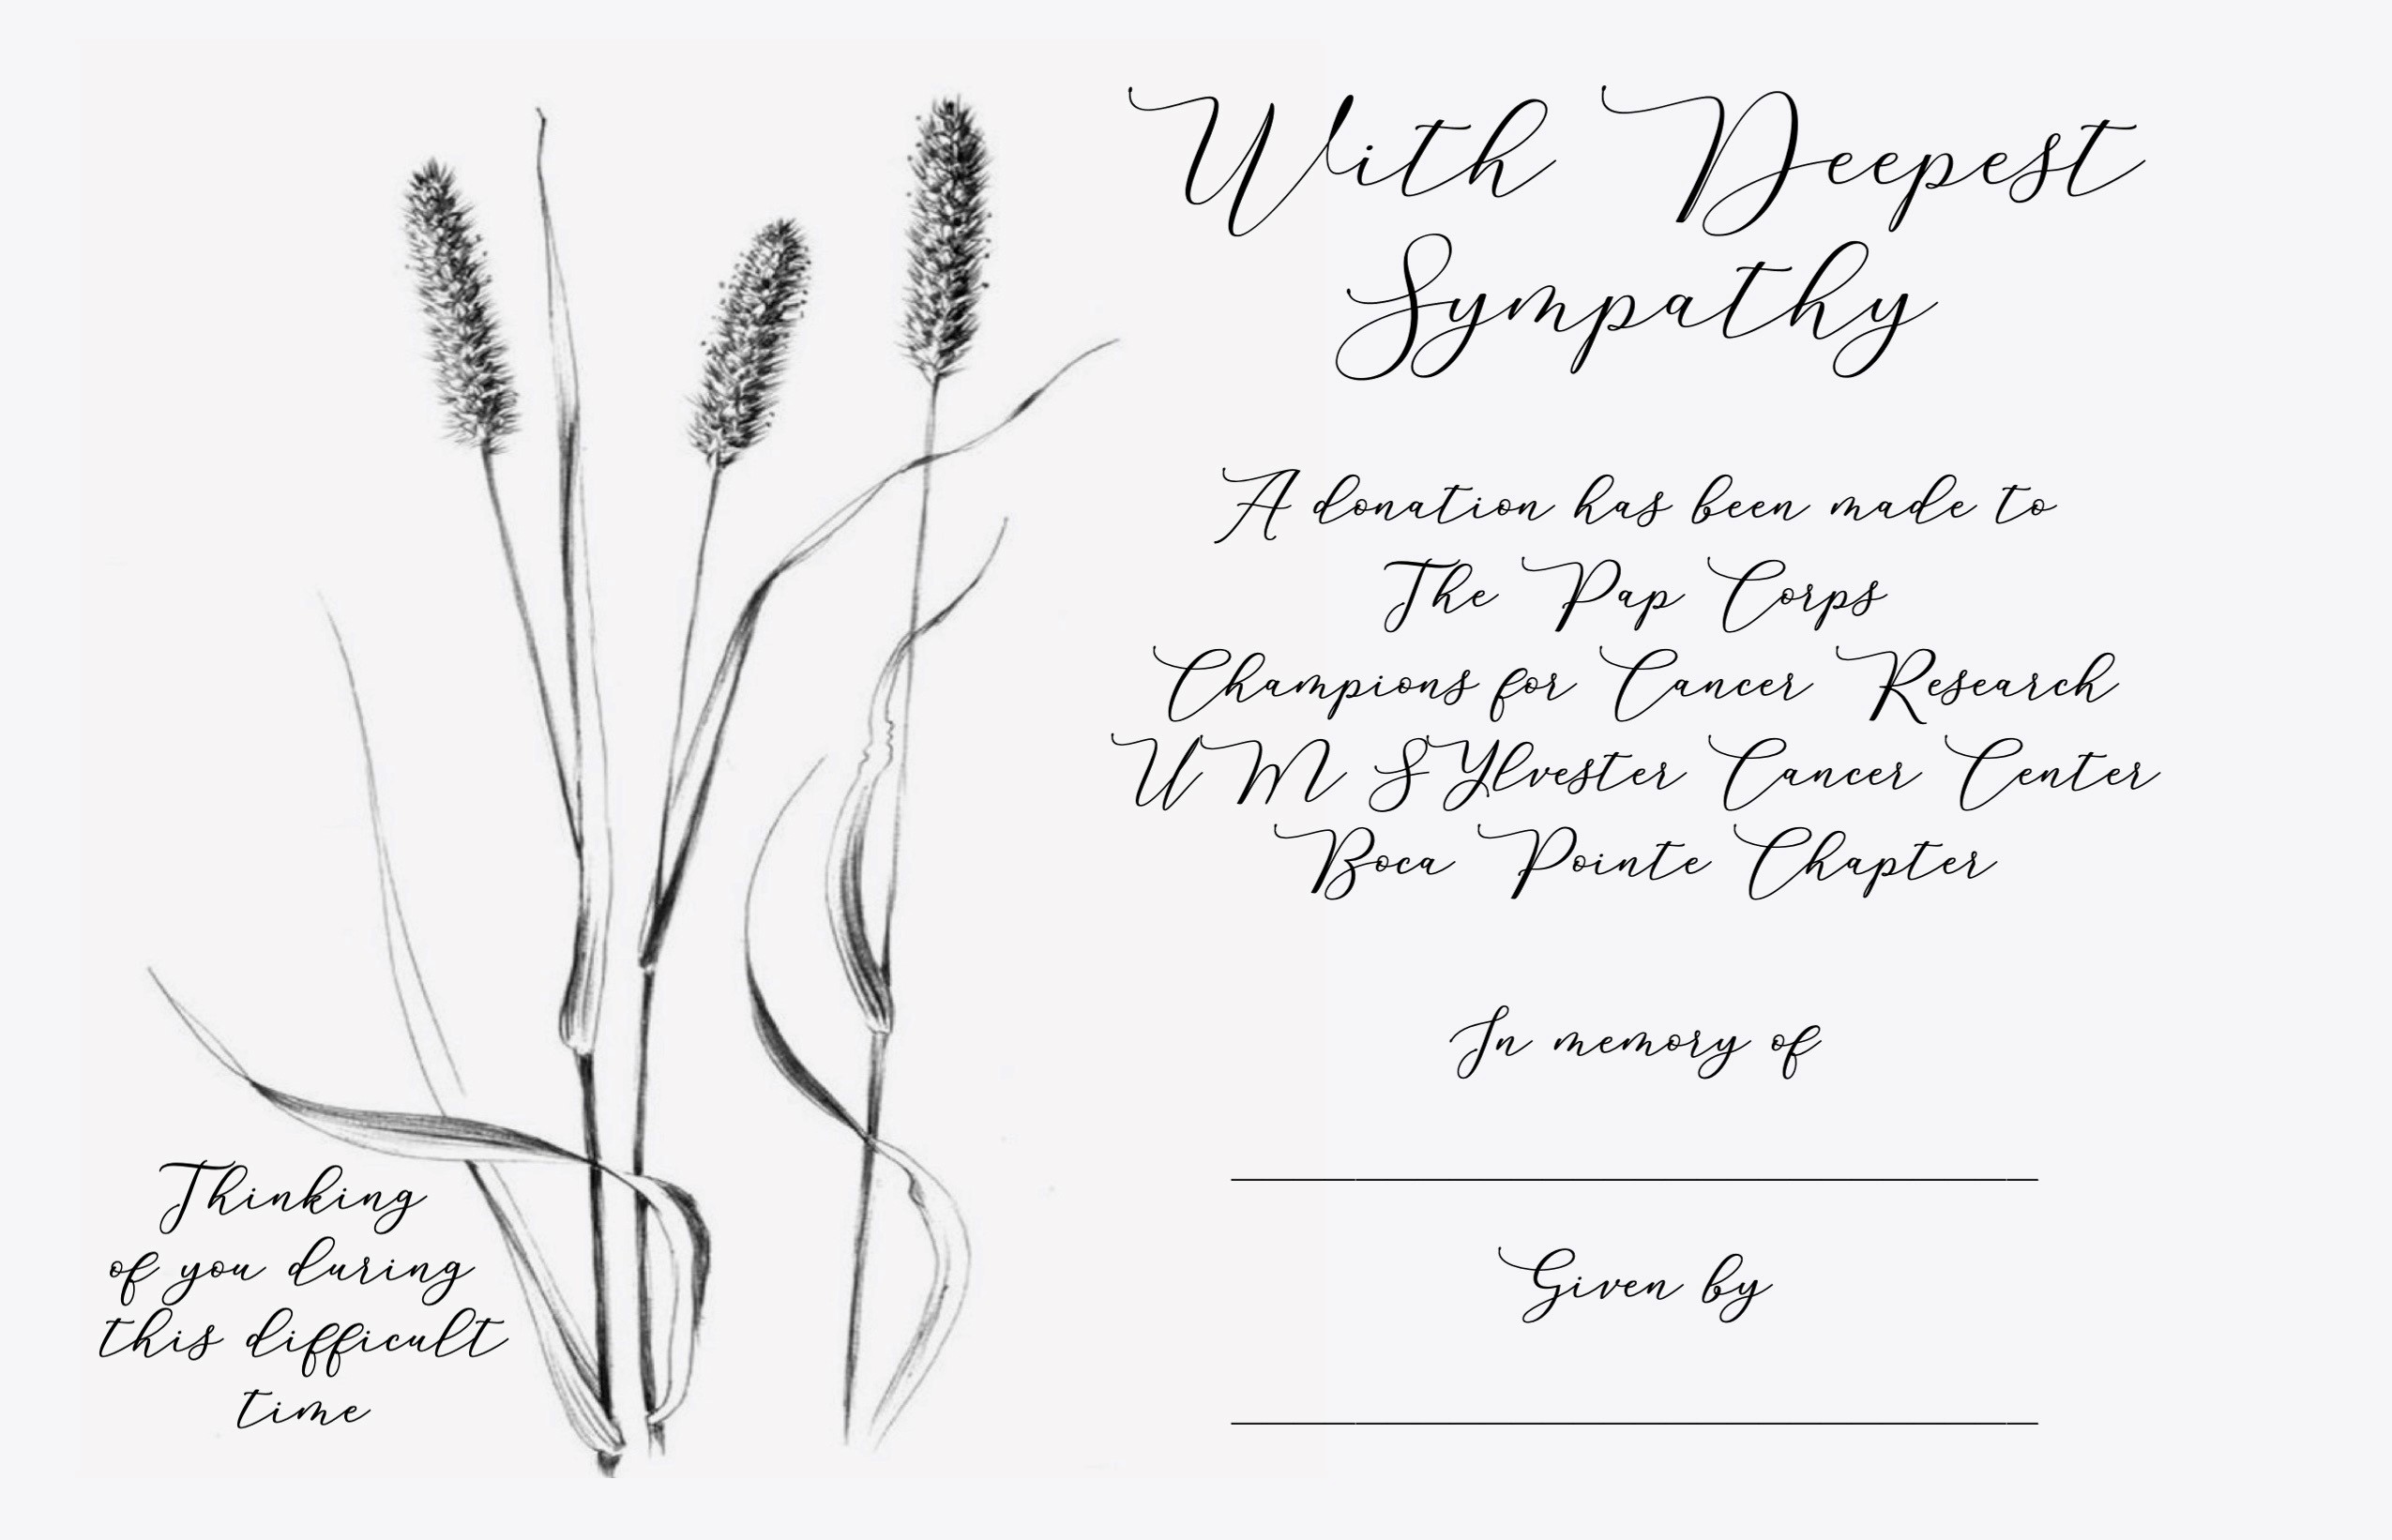 With Deepest
Sympathy
A donation has been made to
The Pap Corps
Champions for Cancer Research
UM SYlvester Cancer Center
Boca Pointe Chapter
In memory of
Given by
Thinking
of you during
this difficult
time